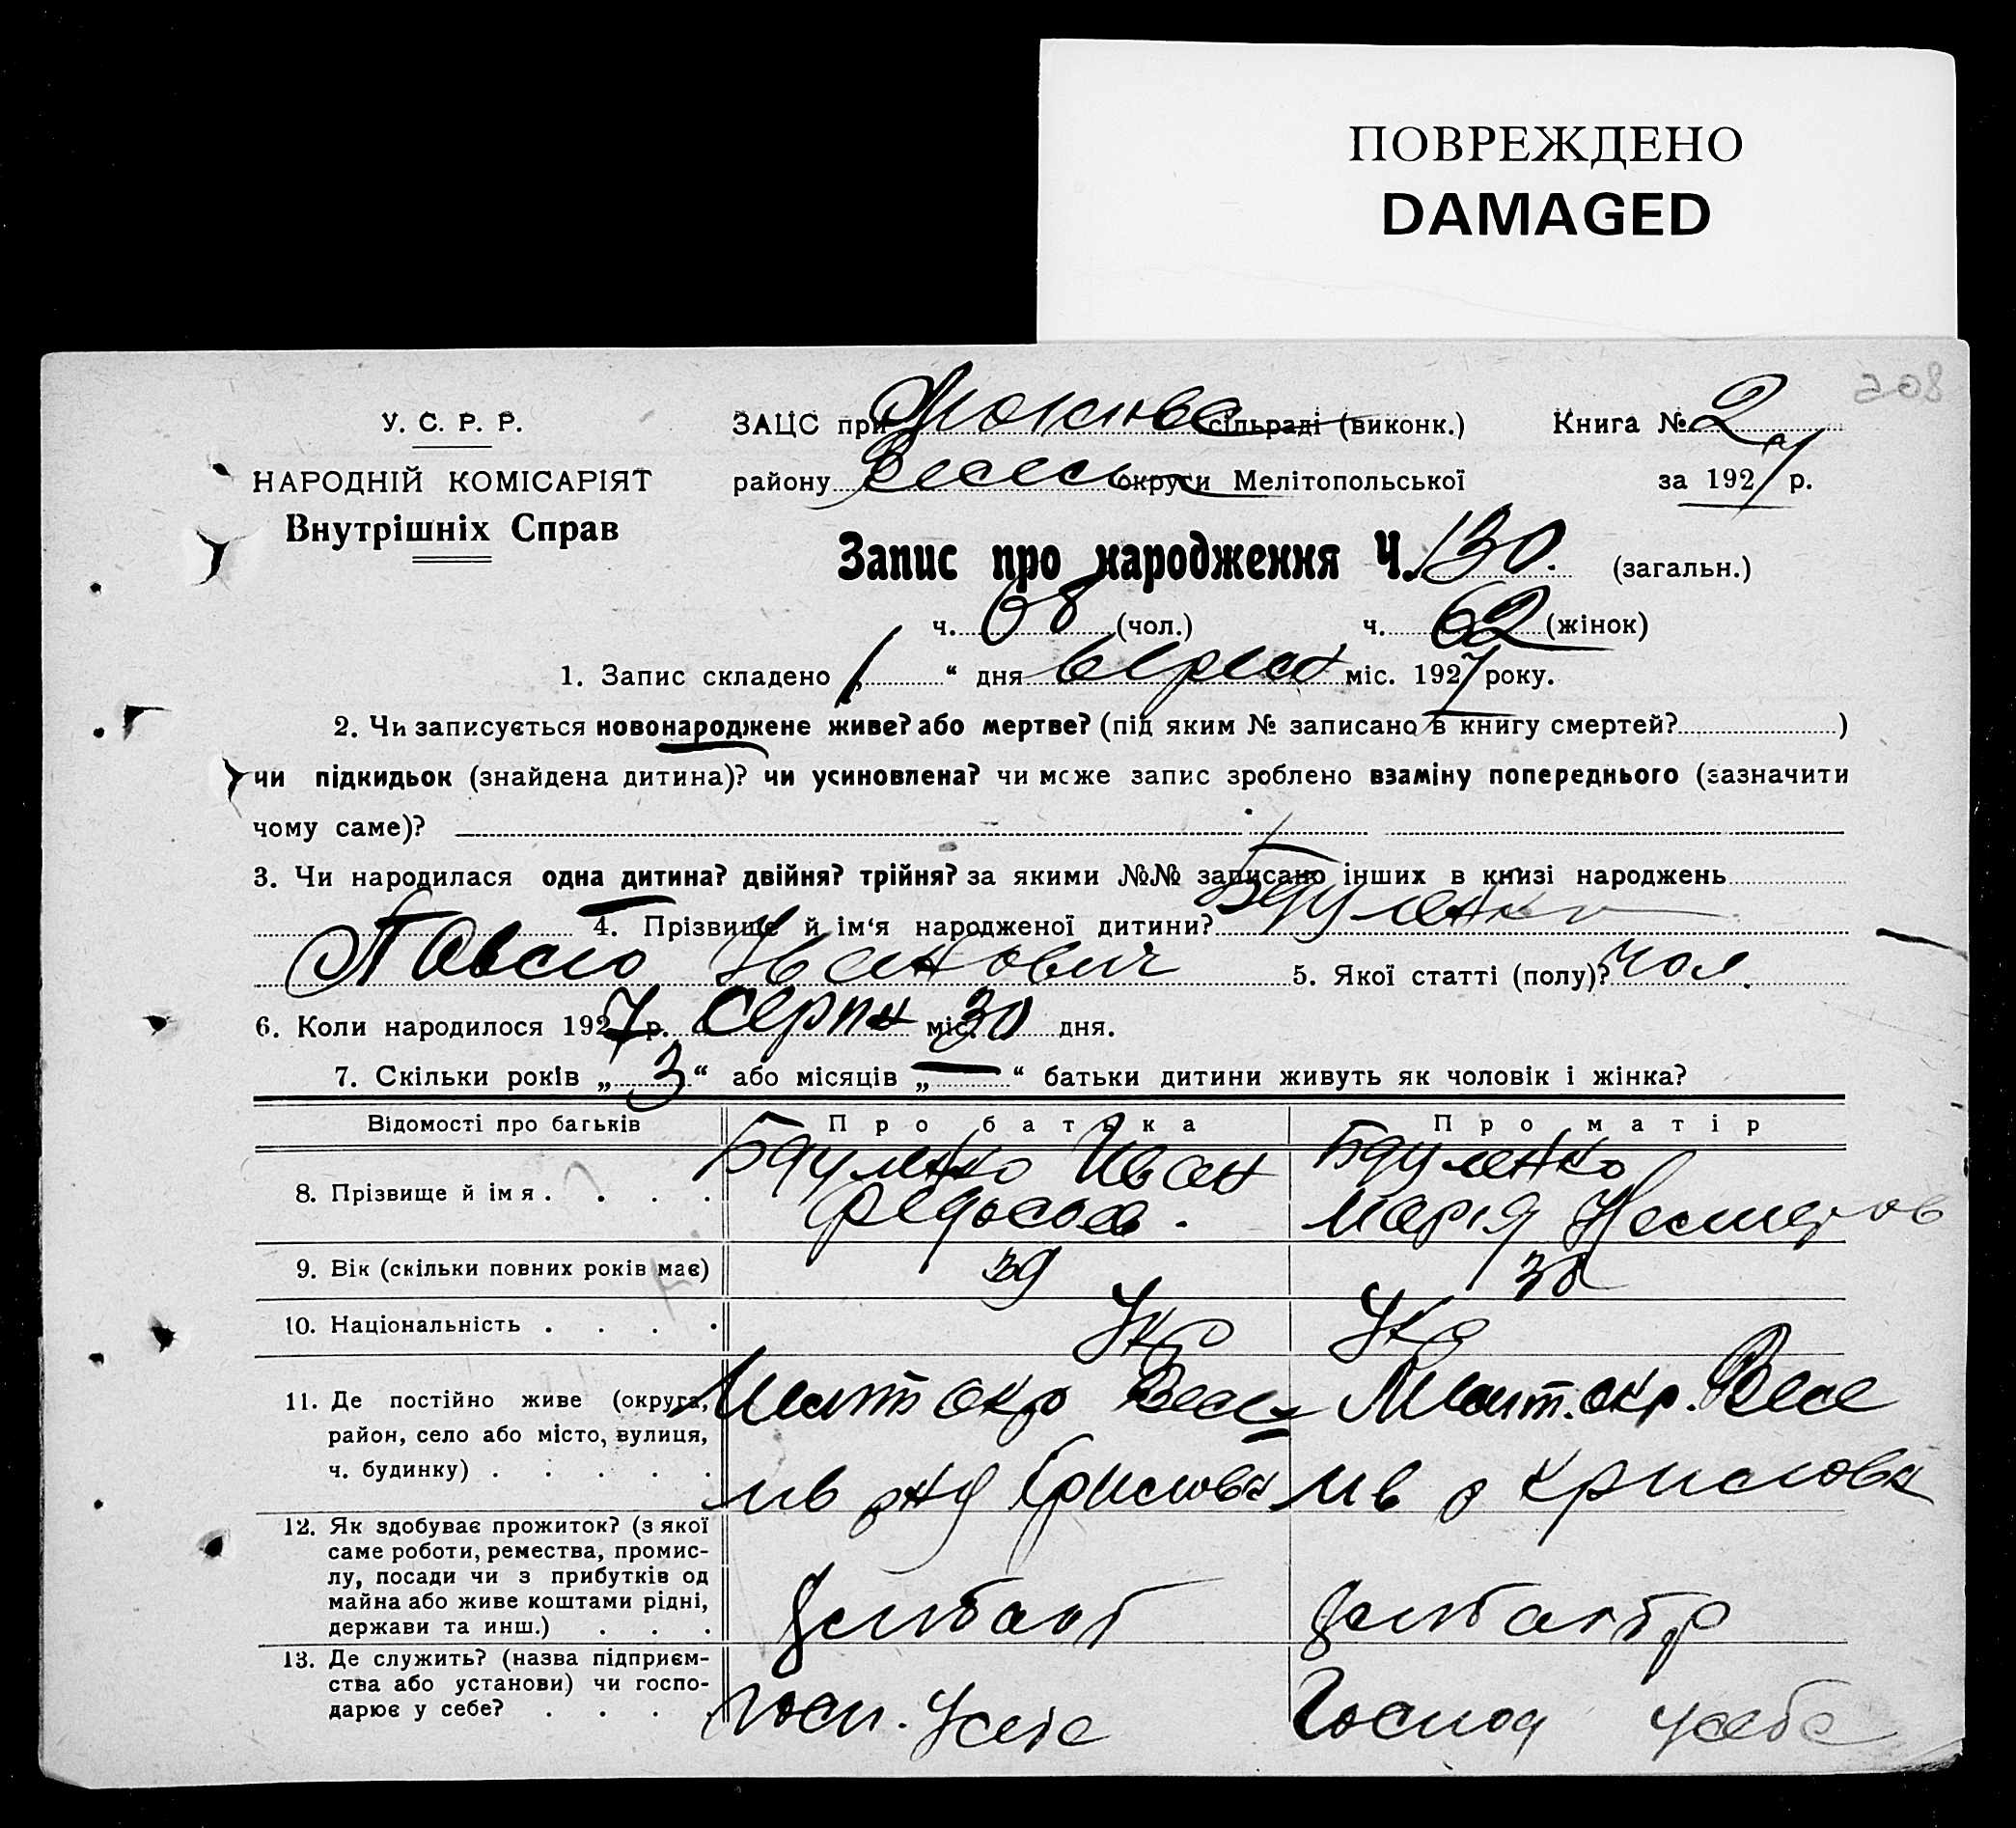 ПОВРЕЖДЕНО
DAMAGED
508
У. С. Р. Р.
НАРОДНІЙ КОМІСАРІЯТ
Внутрішніх Справ
ЗАЦС при сільраді (виконк.) Книга № 2
району Весель округи Мелітопольської за 1927 р.
Запис про народження Ч. 130. (загальн.)
ч. 68 (чол.) ч. 62 (жінок)
1. Запис складено „1“ дня Верес міс. 1927 року.
2. Чи записується новонароджене живе? або мертве? (під яким № записано в книгу смертей? )
чи підкидьок (знайдена дитина)? чи усиновлена? чи може запис зроблено взаміну попереднього (зазначити
чому саме)?
3. Чи народилася одна дитина? двійня? трійня? за якими №№ записано інших в книзі народжень
4. Прізвище й ім‘я народженої дитини? Бдуленко
Павло Иванович 5. Якої статті (полу)? Чол.
6. Коли народилося 1927 р. Серпн міс. 30 дня.
7. Скільки років „3“ або місяців „—“ батьки дитини живуть як чоловік і жінка?
Відомості про батьків Про батька Про матір
8. Прізвище й імя . . . . Бдуленко Иван Бдуленко
Федосов. Марія Нестеров
9. Вік (скільки повних років має) 39 38
10. Національність . . . . Укр Укр
11. Де постійно живе (округа, Мелит окр Весе Мелит. окр. Весе
район, село або місто, вулиця,
ч. будинку) . . . . . лів рнд лів р
12. Як здобуває прожиток? (з якої
саме роботи, ремества, промис-
лу, посади чи з прибутків од
майна або живе коштами рідні,
держави та инш.) . . .
13. Де служить? (назва підприєм-
ства або установи) чи госпо-
дарює у себе? . . . . Госп. Усебе Господ усебе